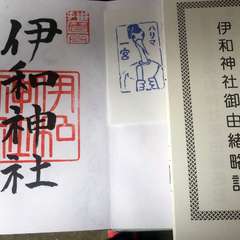 伊和神社
伊和神社
ハリマ
一宮
伊和神社御由緒略記